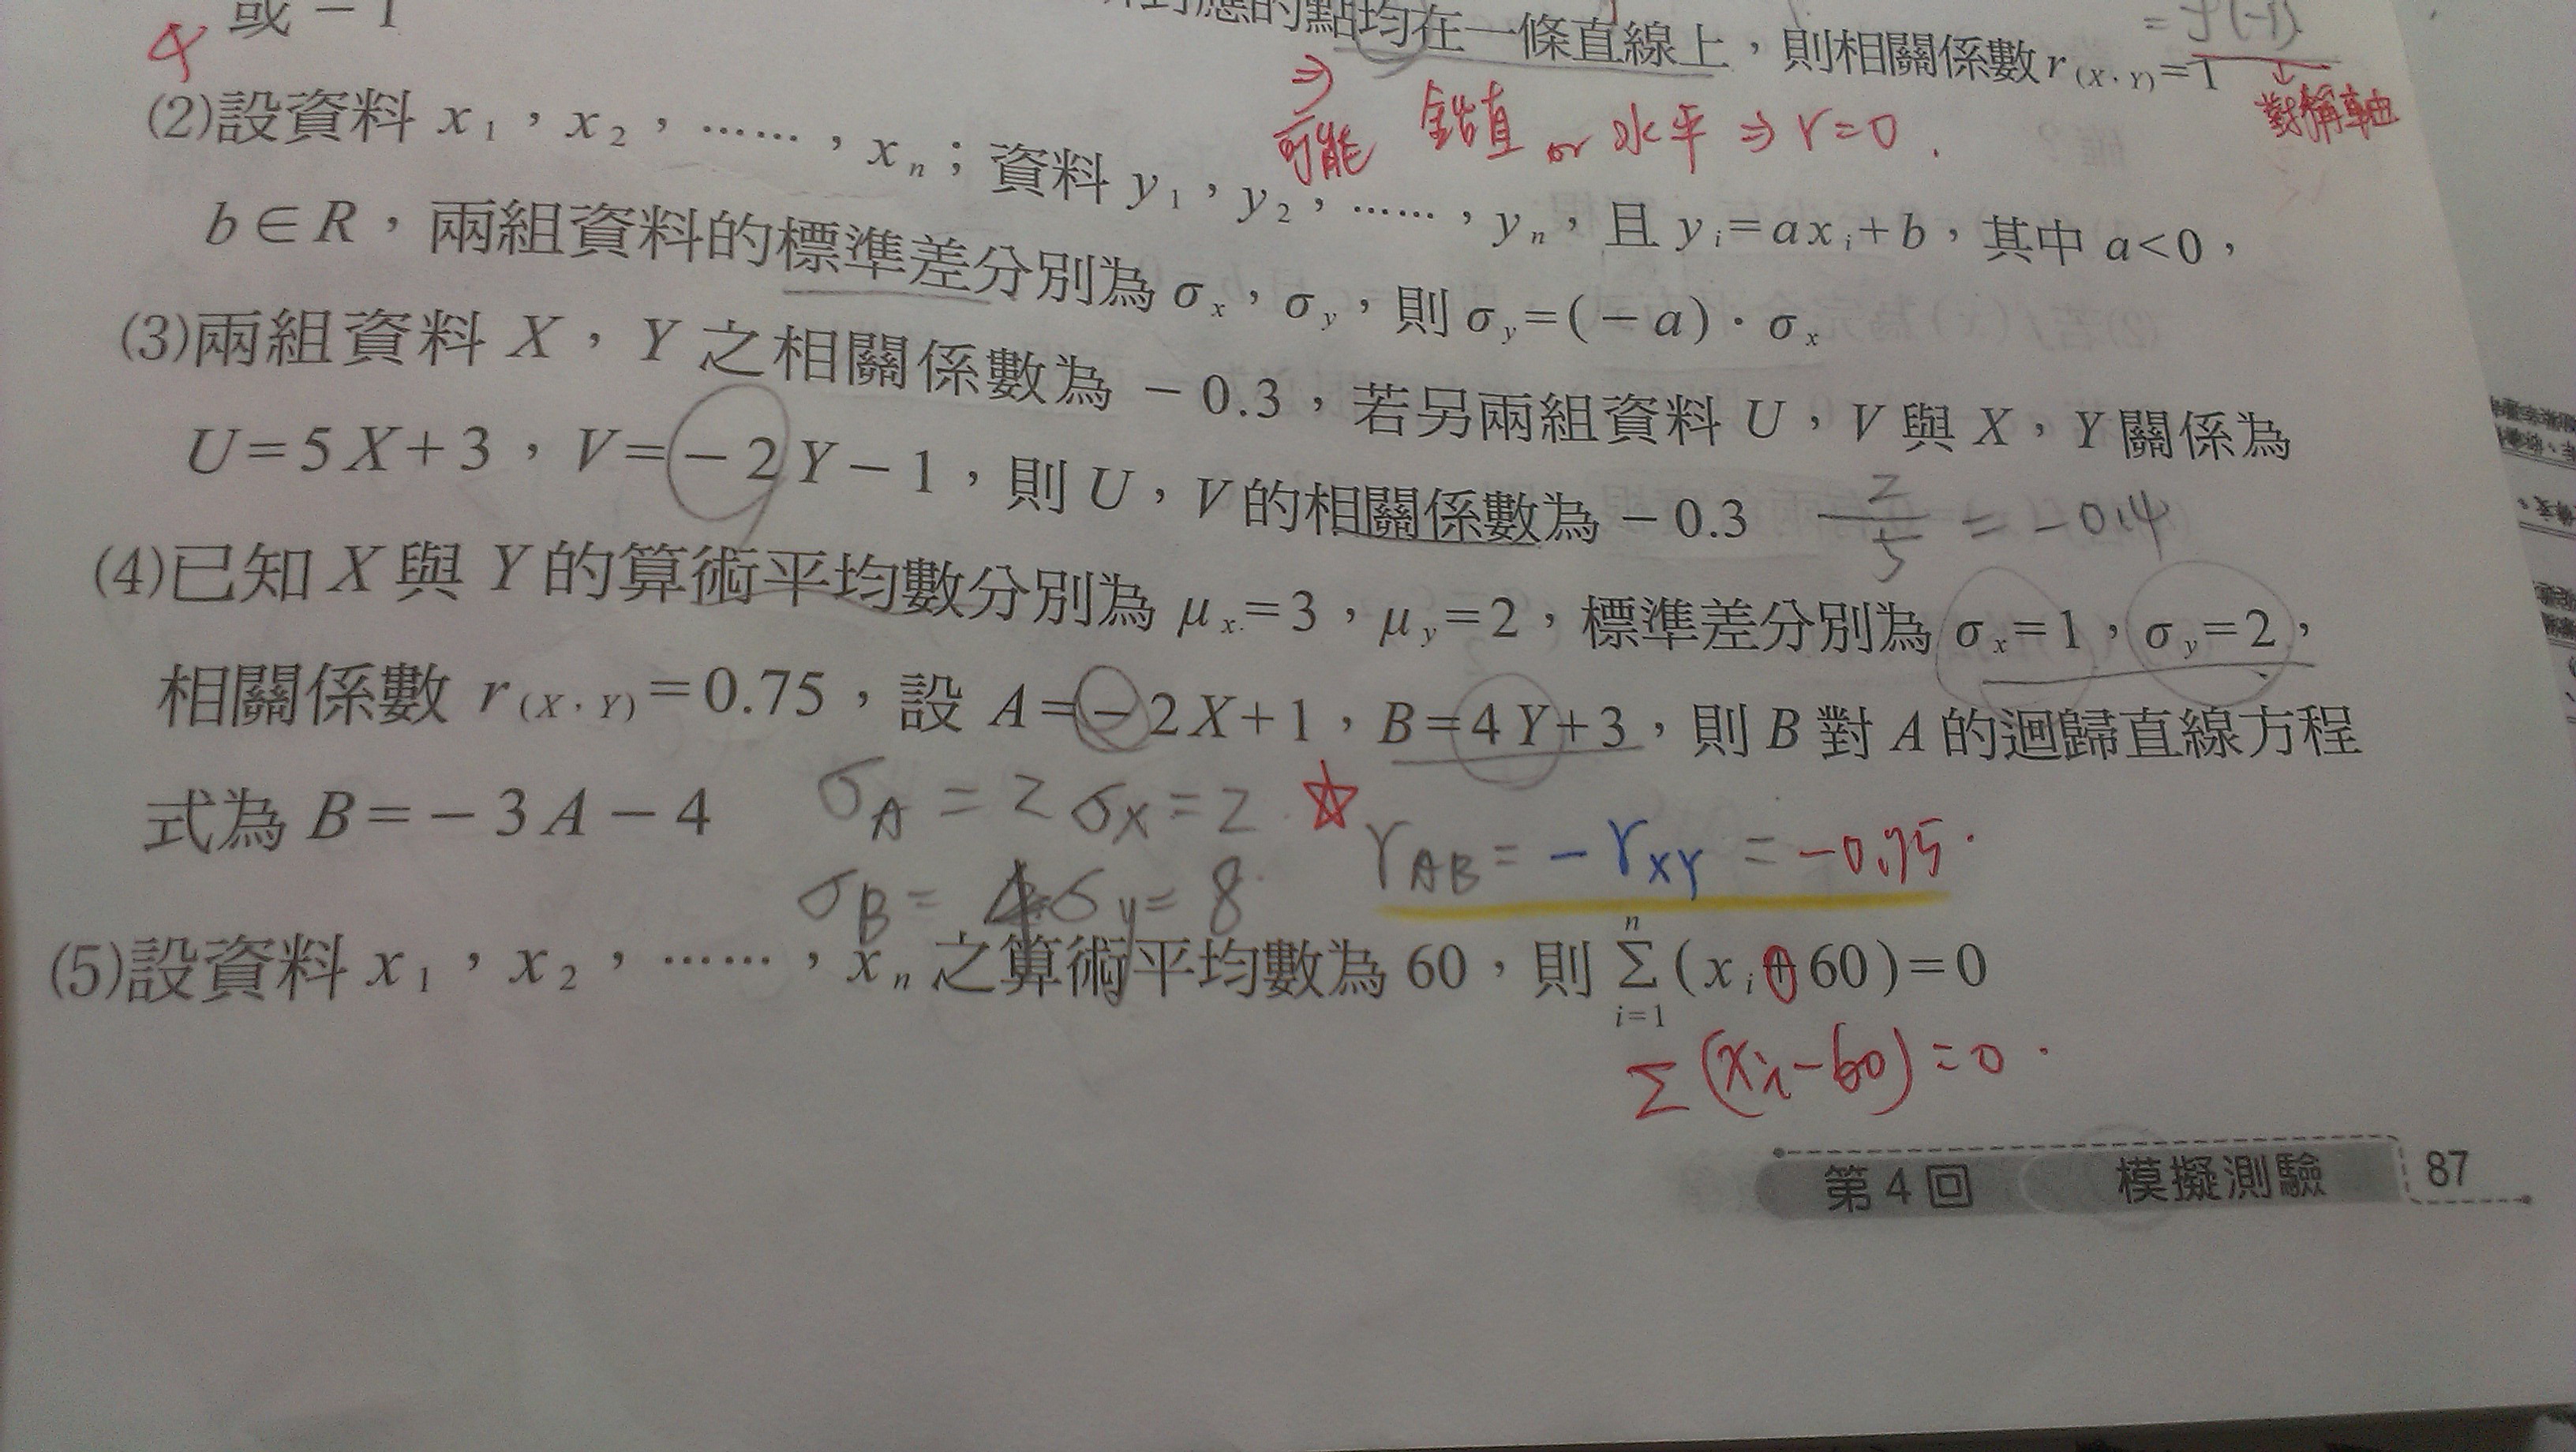 或 －1
應的點均在一條直線上，則相關係數 r(X, Y)=1
= f(-1)
↓
對稱軸
⇒
可能 鉛直 or 水平 ⇒ r=0.
(2)設資料 x1，x2，……，xn；資料 y1，y2，……，yn，且 yi=axi+b，其中 a<0，
b∈R，兩組資料的標準差分別為 σx，σy，則 σy=(－a)·σx
(3)兩組資料 X，Y 之相關係數為 －0.3，若另兩組資料 U，V 與 X，Y 關係為
U=5X+3，V=－2Y－1，則 U，V 的相關係數為 －0.3
2/5 = -0.4
(4)已知 X 與 Y 的算術平均數分別為 μx=3，μy=2，標準差分別為 σx=1，σy=2，
相關係數 r(X, Y)=0.75，設 A=－2X+1，B=4Y+3，則 B 對 A 的迴歸直線方程
式為 B=－3A－4
σA = 2σX = 2 ☆
rAB = -rXY = -0.75.
σB = 4σy = 8
(5)設資料 x1，x2，……，xn 之算術平均數為 60，則 Σ(i=1 to n)(xi+60)=0
Σ(xi-60)=0.
第 4 回 模擬測驗 87